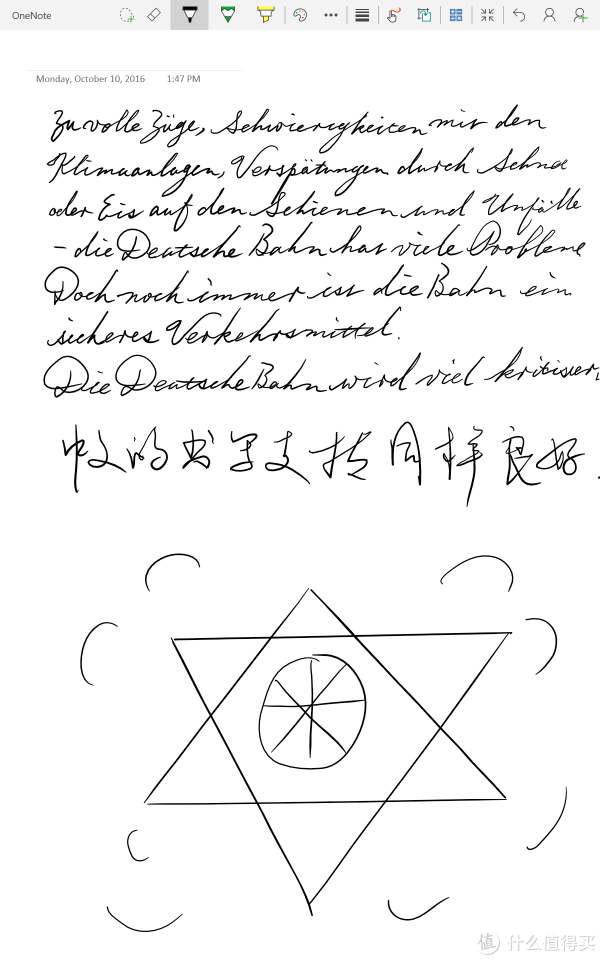 OneNote
Monday, October 10, 2016 1:47 PM
Zu volle Züge, Schwierigkeiten mit den
Klimaanlagen, Verspätungen durch Schnee
oder Eis auf den Schienen und Unfälle
– die Deutsche Bahn hat viele Probleme
Doch noch immer ist die Bahn ein
sicheres Verkehrsmittel.
Die Deutsche Bahn wird viel kritisiert,
中文的书写支持同样良好.
值 什么值得买